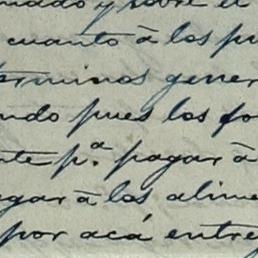 nado y sobre el
cuanto à los pu
términos gener
ndo pues los fo
nte p.ª pagar à
gar à los alime
por acá entre